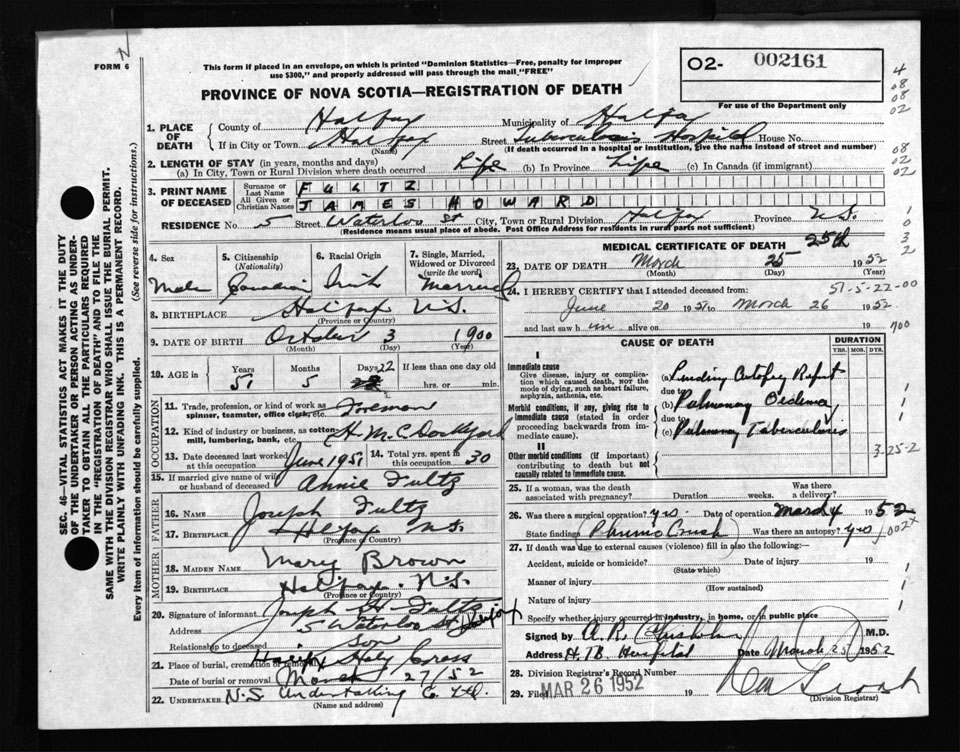 FORM 6
This form if placed in an envelope, on which is printed "Dominion Statistics—Free, penalty for improper
use $300," and properly addressed will pass through the mail "FREE"
PROVINCE OF NOVA SCOTIA—REGISTRATION OF DEATH
O2- 002161
For use of the Department only
1. PLACE OF DEATH
County of Halifax Municipality of Halifax
If in City or Town Halifax Street Tuberculosis Hospital House No.
(Name) (If death occurred in a hospital or institution, give the name instead of street and number)
2. LENGTH OF STAY (in years, months and days)
(a) In City, Town or Rural Division where death occurred Life (b) In Province Life (c) In Canada (if immigrant)
3. PRINT NAME OF DECEASED
Surname or Last Name FULTZ
All Given or Christian Names JAMES HOWARD
RESIDENCE No. 5 Street Waterloo St City, Town or Rural Division Halifax Province N.S.
(Residence means usual place of abode. Post Office Address for residents in rural parts not sufficient)
4. Sex
Male
5. Citizenship (Nationality)
Canadian
6. Racial Origin
Irish
7. Single, Married, Widowed or Divorced (write the word)
Married
8. BIRTHPLACE Halifax N.S.
(Province or Country)
9. DATE OF BIRTH October 3 1900
(Month) (Day) (Year)
10. AGE in Years Months Days If less than one day old
51 5 22 hrs. or min.
OCCUPATION
11. Trade, profession, or kind of work as
spinner, teamster, office clerk, etc. Foreman
12. Kind of industry or business, as cotton-
mill, lumbering, bank, etc. H.M.C. Dockyard
13. Date deceased last worked
at this occupation June 1951
14. Total yrs. spent in
this occupation 30
15. If married give name of wife
or husband of deceased Annie Fultz
FATHER
16. NAME Joseph Fultz
17. BIRTHPLACE Halifax N.S.
(Province or Country)
MOTHER
18. MAIDEN NAME Mary Brown
19. BIRTHPLACE Halifax N.S.
(Province or Country)
20. Signature of informant Joseph H Fultz
Address 5 Waterloo St Halifax
Relationship to deceased son
21. Place of burial, cremation or removal Holy Cross
Date of burial or removal March 27/52
22. UNDERTAKER N.S. Undertaking Co. Ltd.
(Name and address)
MEDICAL CERTIFICATE OF DEATH
25th
23. DATE OF DEATH March 25 1952
(Month) (Day) (Year)
24. I HEREBY CERTIFY that I attended deceased from: 51-5-22-00
June 20 1951 to March 26 1952
and last saw him alive on 19
CAUSE OF DEATH
DURATION
YRS. MOS. DYS.
I
Immediate cause
Give disease, injury or complication which caused death, not the mode of dying, such as heart failure, asphyxia, asthenia, etc.
(a) Pending Autopsy Report
due to
Morbid conditions, if any, giving rise to immediate cause (stated in order proceeding backwards from immediate cause).
(b) Pulmonary Oedema
due to
(c) Pulmonary Tuberculosis
II
Other morbid conditions (if important) contributing to death but not causally related to immediate cause.
25. If a woman, was the death
associated with pregnancy? Duration weeks. Was there a delivery?
26. Was there surgical operation? yes Date of operation March 4 1952
State findings Phrenic Crush Was there an autopsy? yes
27. If death was due to external causes (violence) fill in also the following:—
Accident, suicide or homicide? Date of injury 19
(State which)
Manner of injury
(How sustained)
Nature of injury
Specify whether injury occurred in industry, in home, or in public place
Signed by A.R. Chisholm M.D.
Address H.TB. Hospital Date March 25 1952
28. Division Registrar's Record Number
29. Filed MAR 26 1952 19
(Division Registrar)
SEC. 46—VITAL STATISTICS ACT MAKES IT THE DUTY
OF THE UNDERTAKER OR PERSON ACTING AS UNDER-
TAKER TO OBTAIN ALL THE PARTICULARS REQUIRED
IN THE "REGISTRATION OF DEATH" AND TO FILE THE
SAME WITH THE DIVISION REGISTRAR WHO SHALL ISSUE THE BURIAL PERMIT.
WRITE PLAINLY WITH UNFADING INK. THIS IS A PERMANENT RECORD.
Every item of information should be carefully supplied. (See reverse side for instructions.)